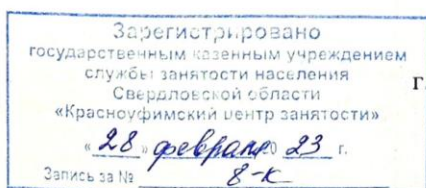 Зарегистрировано
государственным казенным учреждением
службы занятости населения
Свердловской области
«Красноуфимский центр занятости»
«28» февраля 20 23 г.
Запись за № 8-К
г.